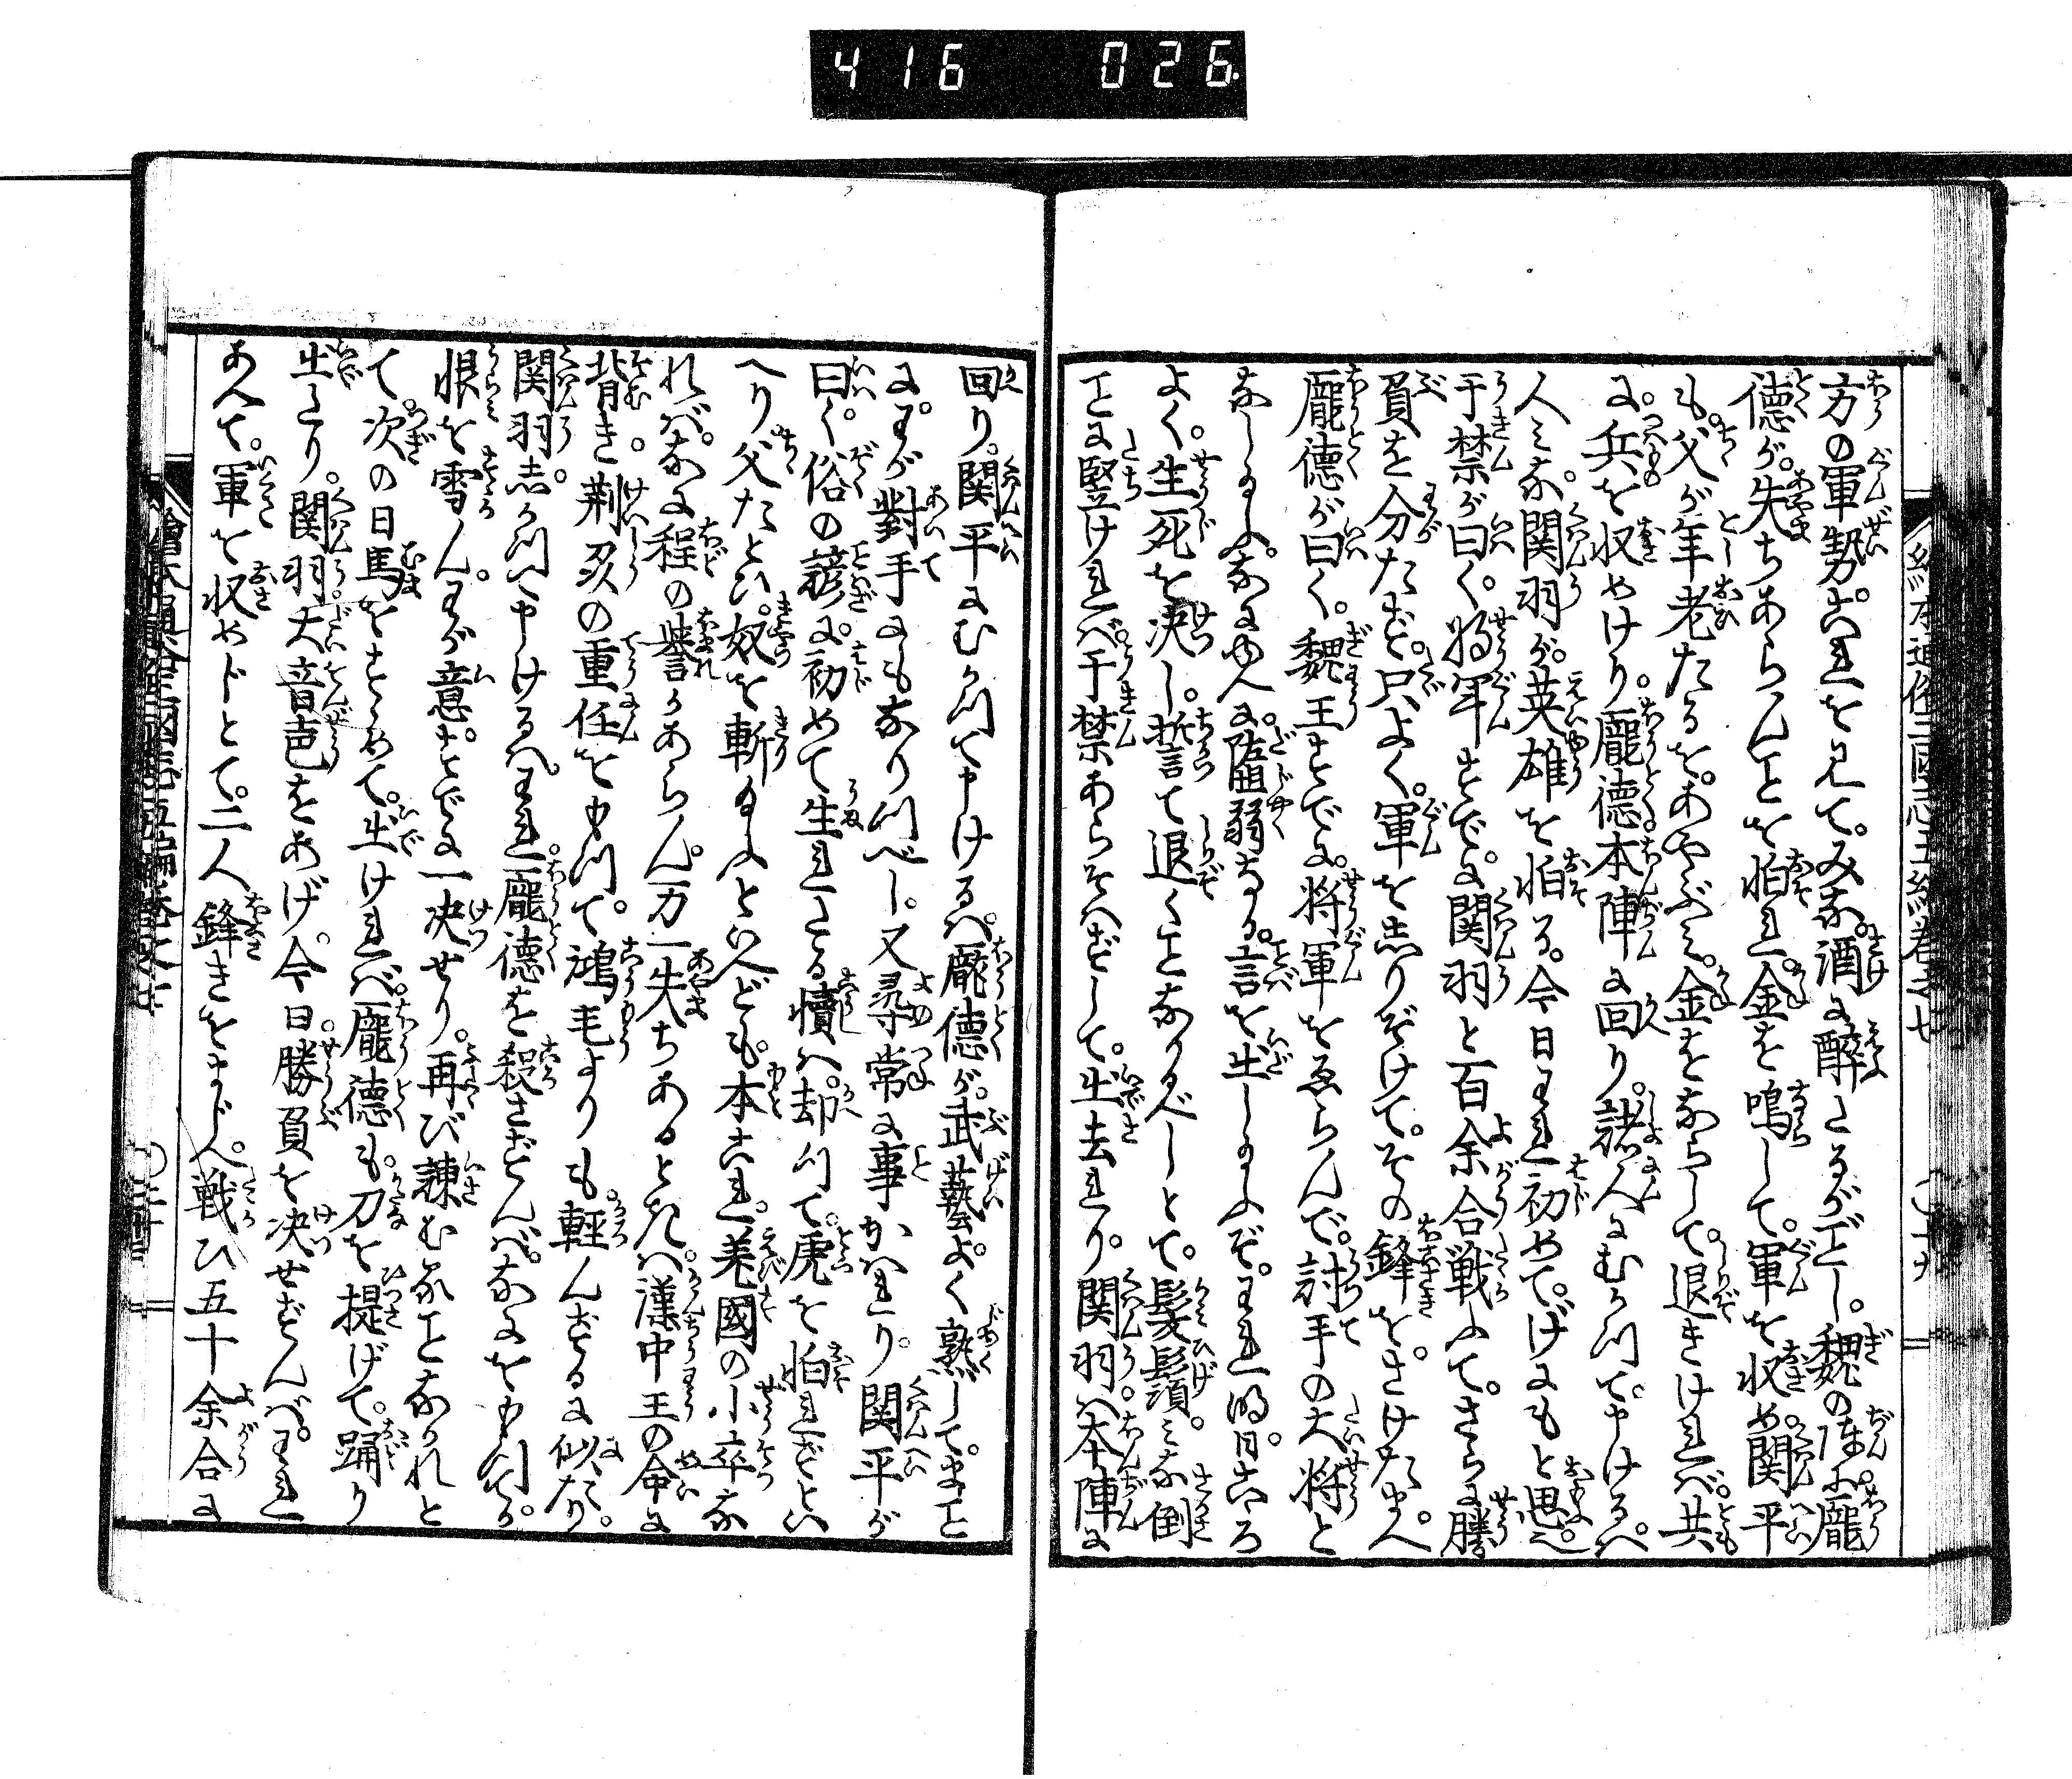 416 026
方の軍勢。これを見て。みな。酒に醉たるがごとし。魏の陣に龐
德が。失ちあらんことを怕れ。金を鳴して。軍を収め。関平
も。父が年老たるを。あやぶみ。金をならして。退きければ。共
に。兵を収めけり。龐德本陣に回り。諸人にむかつて。申けるハ。
人みな。関羽が。英雄を怕る。今日われ初めて。げにもと思へり。
于禁が曰く。将軍すでに。関羽と百余合戦ふて。さらに勝
負を分たず。只よく。軍を志りぞけて。その鋒を。さけたまへ
龐德が曰く。魏王すでに。将軍をゑらんで。討手の大将と
なしたまふ。なにゆへに。懦弱なる。言を出したまふぞ。われ明日。こゝろ
よく。生死を決し。誓て退くことなかるべしとて。髪鬚。みな倒
ことに竪ければ。于禁あらそハずして。出去れり。関羽ハ本陣に
回り。関平にむかつて申けるハ。龐德が。武藝よく熟して。まこと
に。わが對手にもなりつべし。又尋常に事かハれり。関平が
曰く。俗の諺に。初めて生れたる犢ハ。却つて。虎を怕れずとい
へり父たとひ。奴を斬たまふといへども。本これ。羌國の小卒な
れバ。なに程の譽かあらん。万一失ちあるときハ。漢中王の命に
背き。荆州の重任をもつて。鴻毛よりも軽んずるに似たり。
関羽。志かつて申けるハ。われ。龐德を殺さずんバ。なにをもつてか。
恨を雪ん。わが意。すでに一决せり。再び諫むることなかれと
て。次の日馬をすゝめて。出けれバ。龐德も。刀を提げて。踊り
出たり。関羽大音声をあげ。今日。勝負を决せずんバ。われ
あへて。軍を収めじとて。二人鋒きをまじへ。戦ひ五十余合に